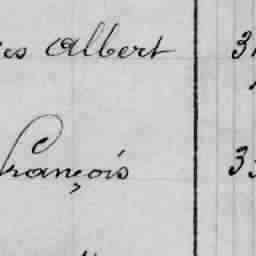 es Albert 3
François 33